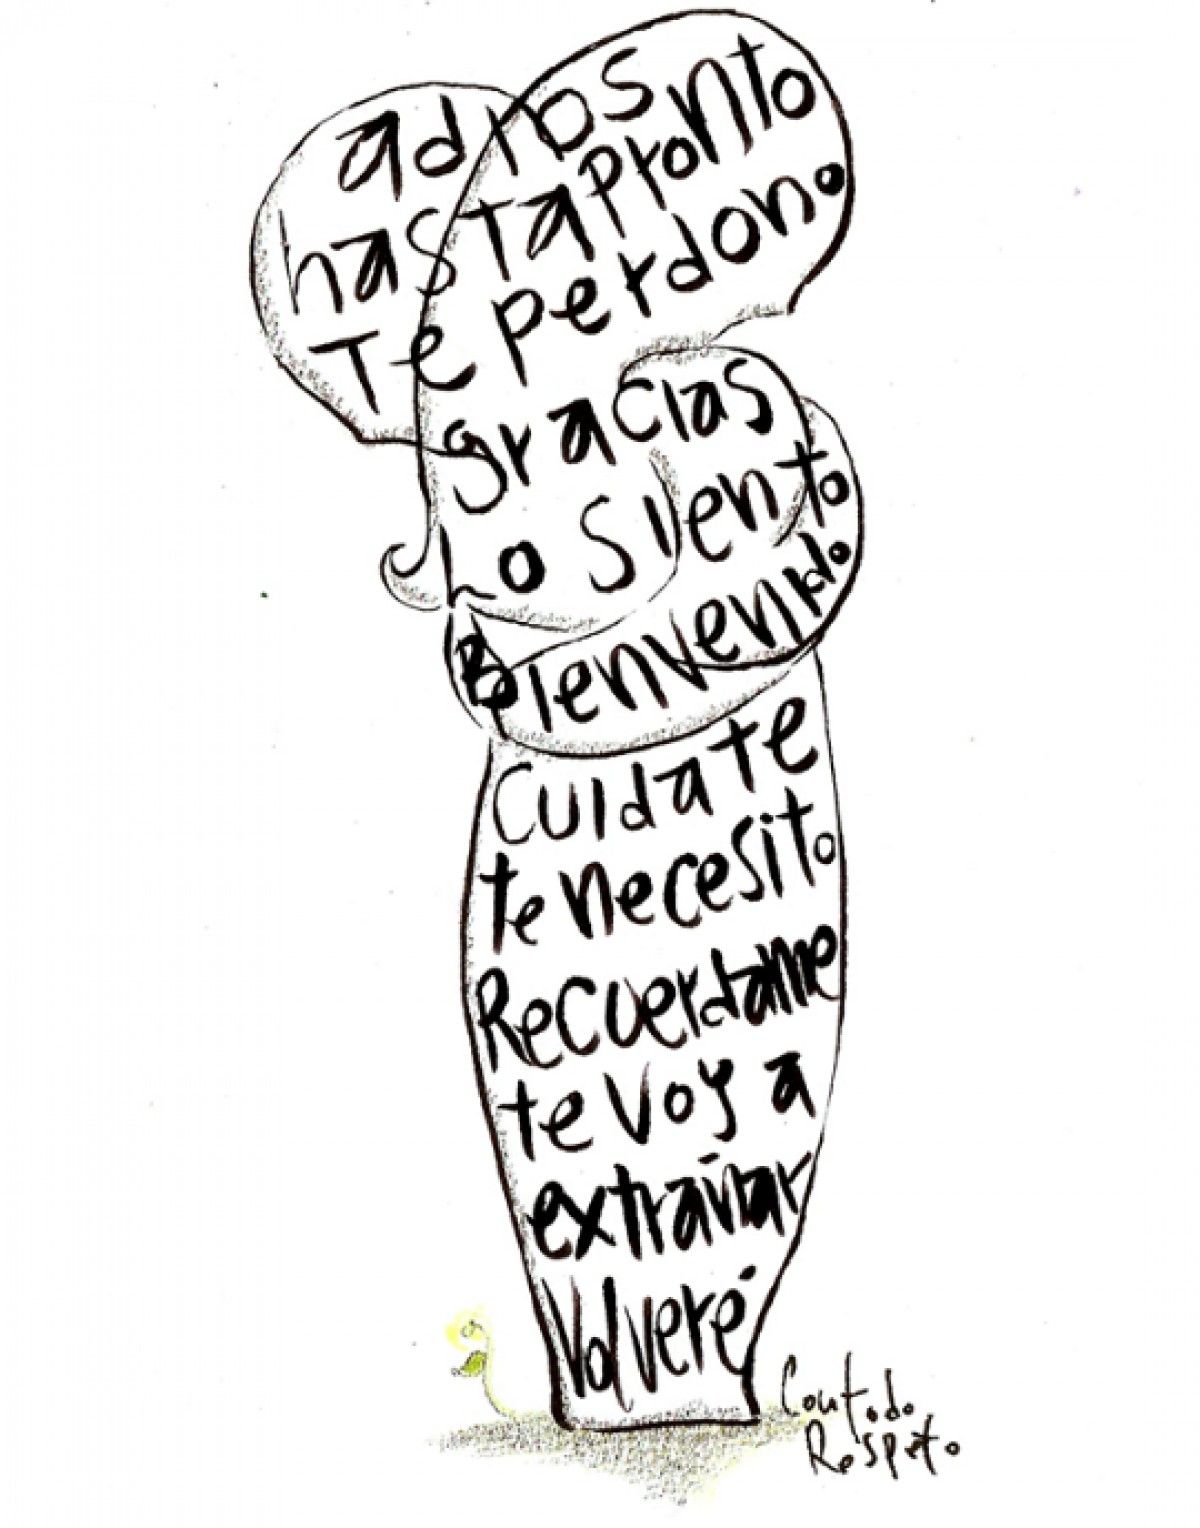 adios
hasta pronto
Te perdono
gracias
Lo siento
Bienvenido
Cuidate
te necesito
Recuerdame
te voy a
extrañar
Volveré
Con todo
Respeto